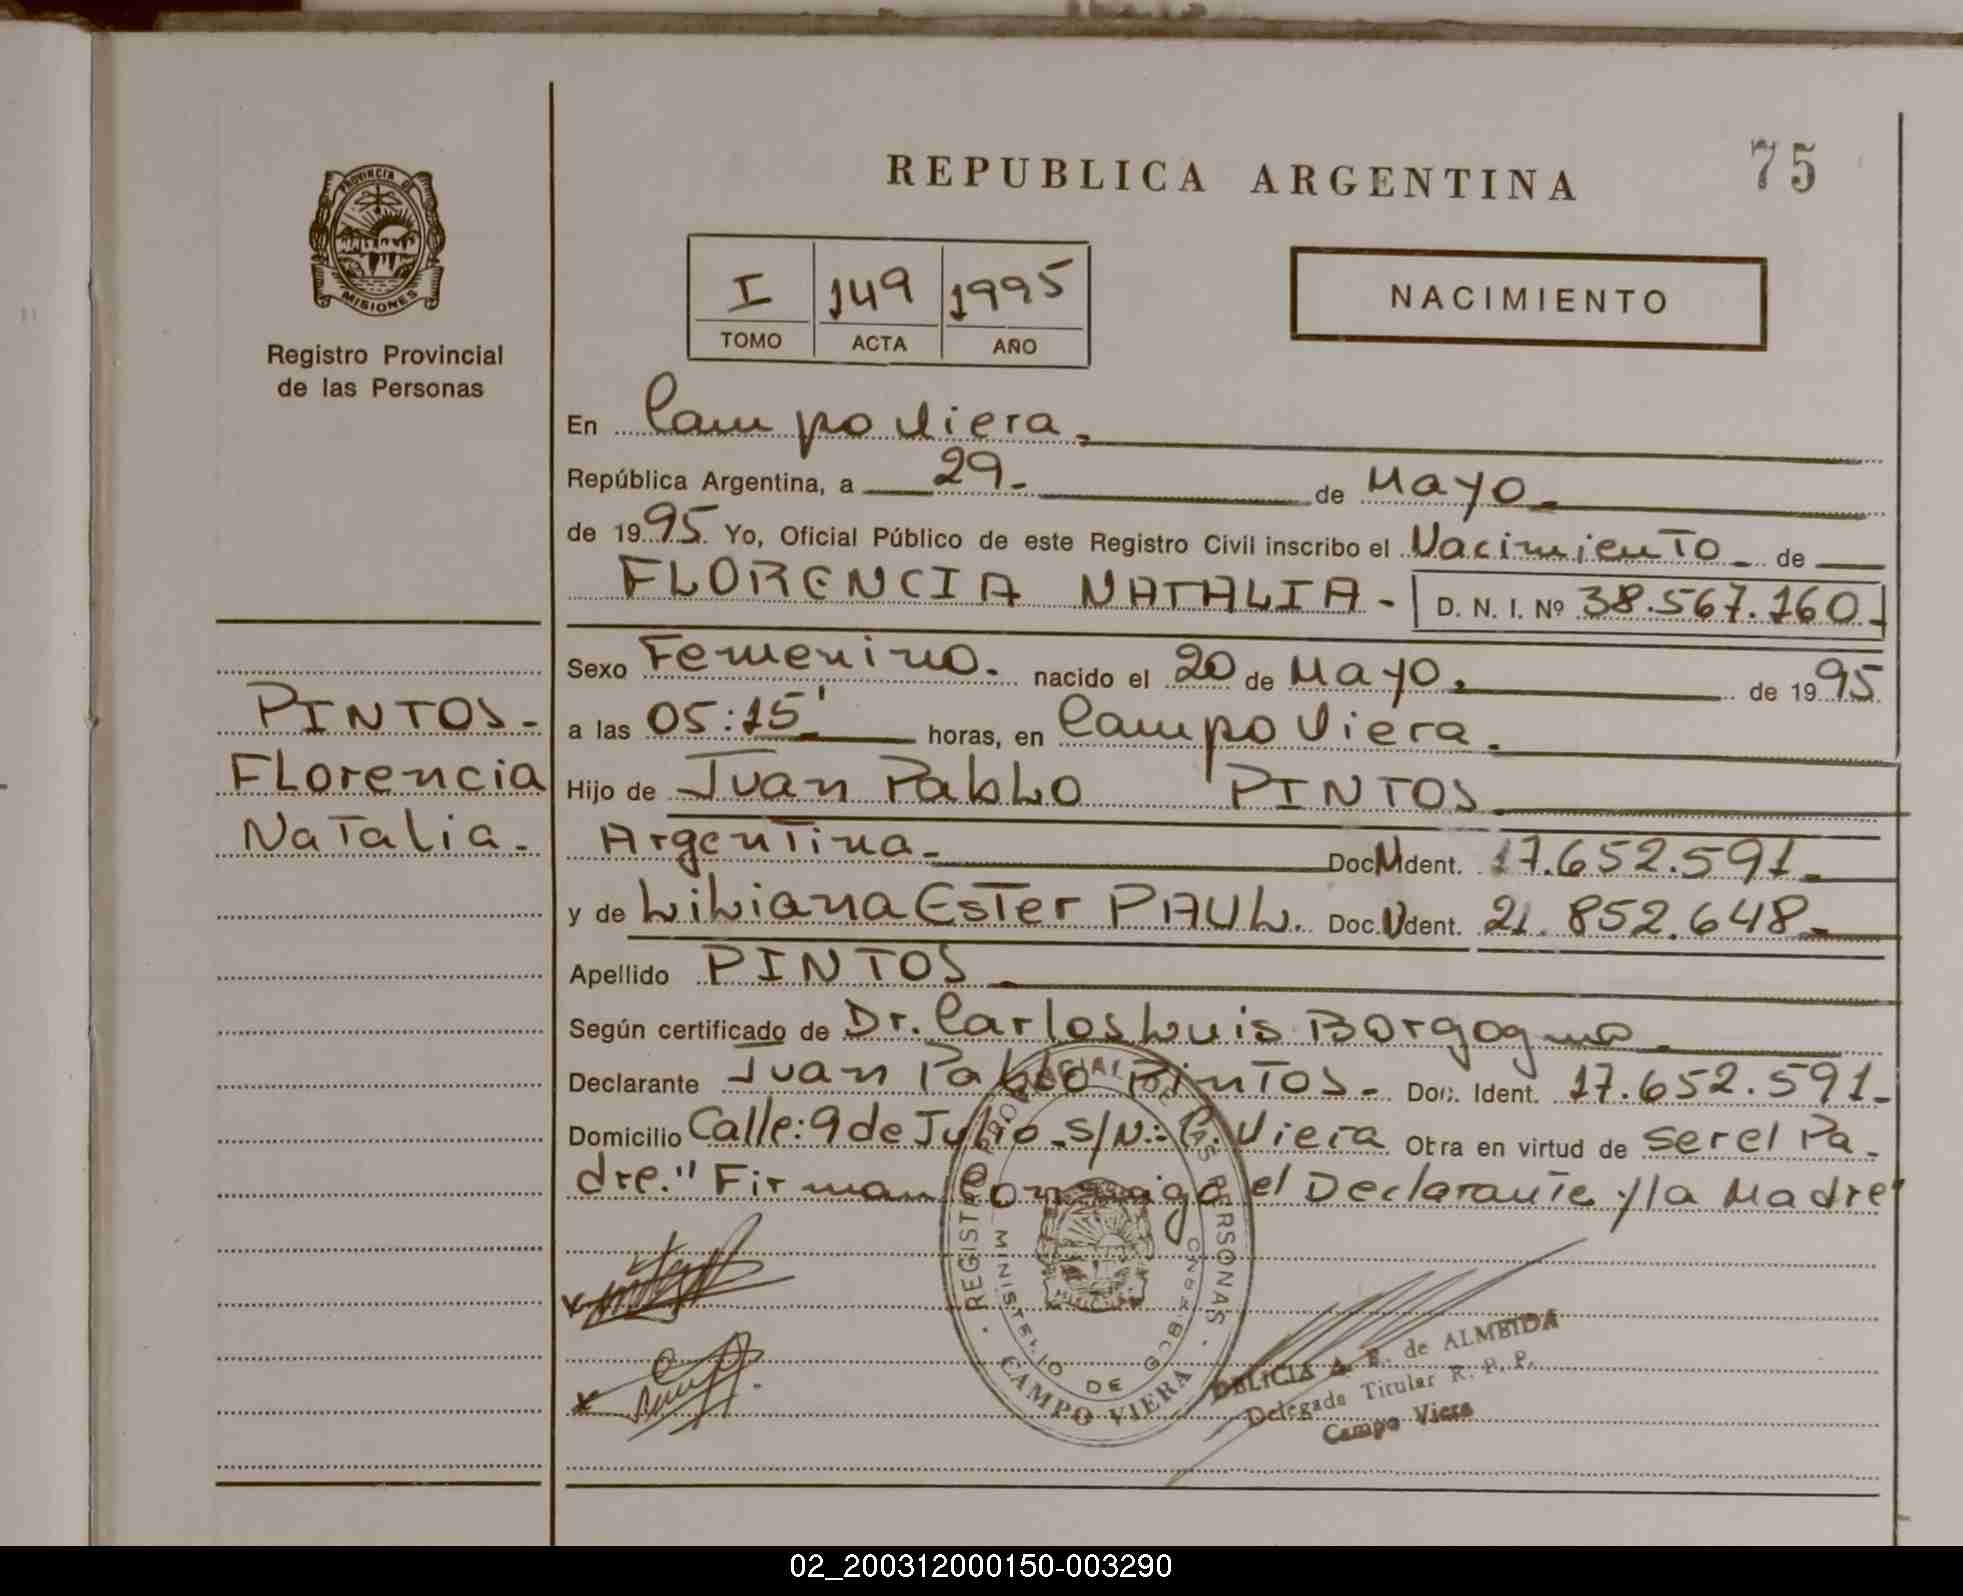 75
REPUBLICA ARGENTINA
PROVINCIA DE
MISIONES
Registro Provincial
de las Personas
I 149 1995
TOMO ACTA AÑO
NACIMIENTO
En Campo Viera.
República Argentina, a 29- de Mayo-
de 1995. Yo, Oficial Público de este Registro Civil inscribo el Nacimiento- de
FLORENCIA NATALIA- D. N. I. Nº 38.567.160-
Sexo Femenino. nacido el 20 de Mayo. de 1995
a las 05:15' horas, en Campo Viera.
Hijo de Juan Pablo PINTOS
Argentina- Doc. Ident. 17.652.591-
y de Liliana Ester PAUL. Doc. Ident. 21.852.648-
Apellido PINTOS
Según certificado de Dr. Carlos Luis Borgogno-
Declarante Juan Pablo Pintos- Doc. Ident. 17.652.591-
Domicilio Calle: 9 de Julio s/N:- C. Viera Obra en virtud de ser el Pa-
dre." Firman Conmigo el Declarante y la Madre"
PINTOS-
Florencia
Natalia-
REGISTRO PROVINCIAL DE LAS PERSONAS
MINISTERIO DE GOBIERNO
CAMPO VIERA
DELICIA A. E. de ALMEIDA
Delegada Titular R. P. P.
Campo Viera
02_200312000150-003290